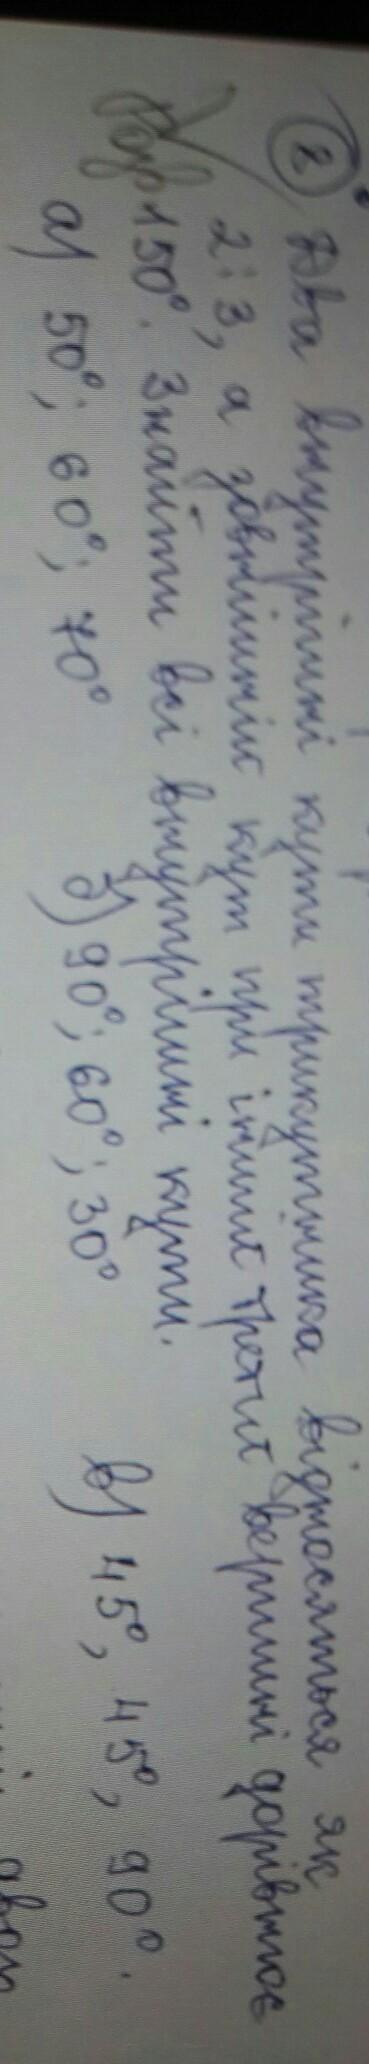 2 Два внутрішні кути трикутника відносяться як
2:3, а зовнішній кут при іншій третій вершині дорівнює
150°. Знайти всі внутрішні кути.
а) 50°; 60°; 70° б) 90°; 60°; 30° в) 45°, 45°, 90°.